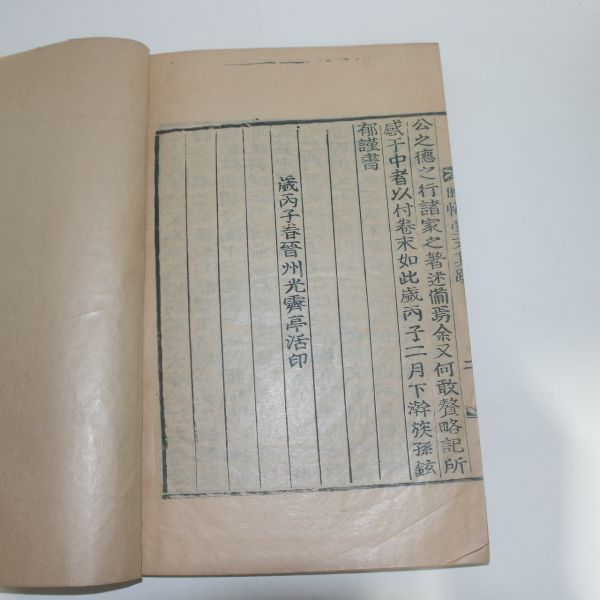 公之德之行諸家之著述備焉余又何敢贅略記所
感于中者以付卷末如此歲丙子二月下澣族孫鉉
郁謹書
歲丙子春晉州光霽亭活印